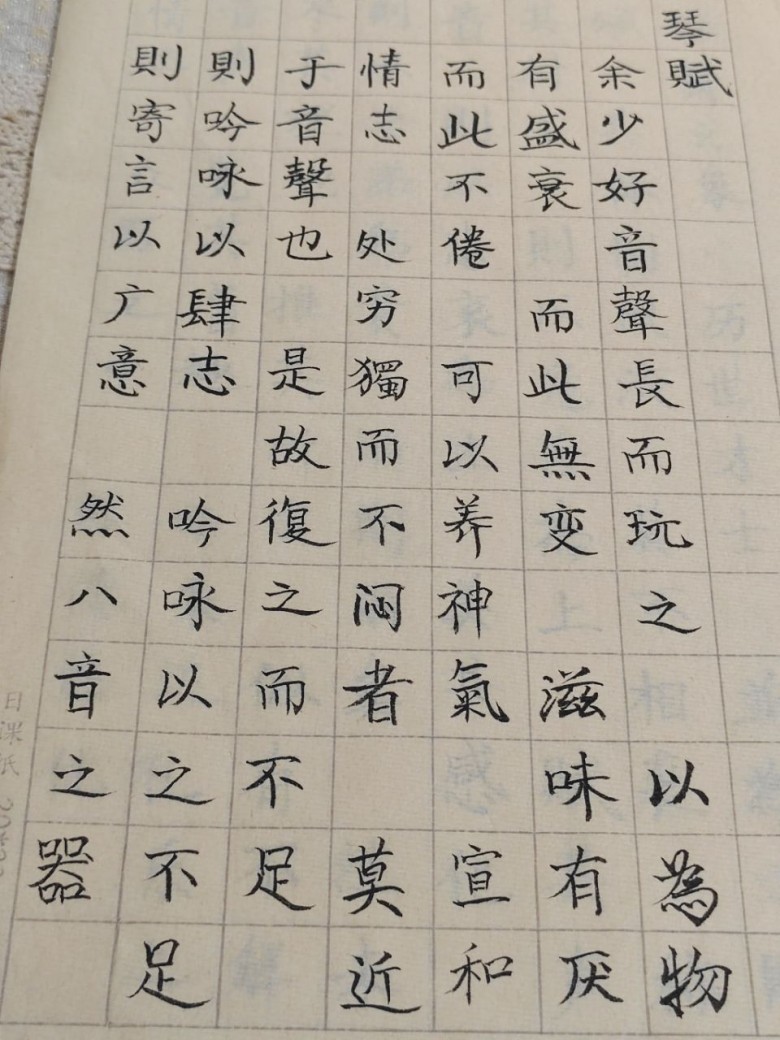 琴賦
余少好音聲長而玩之以為物
有盛衰而此無变滋味有厌
而此不倦可以养神氣宣和
情志处穷獨而不闷者莫近
于音聲也是故復之而不足
則吟咏以肆志吟咏以之不足
則寄言以广意然八音之器
日課紙